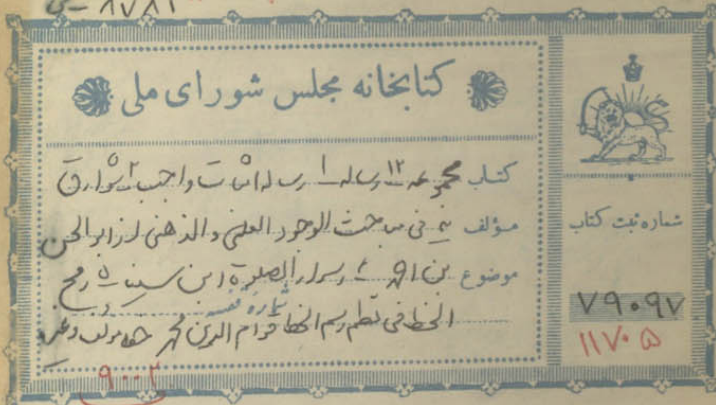 ۸۷۸۲
کتابخانه مجلس شورای ملی
کتاب مجموعه ۱۲ رساله ۱ رساله اثبات واجب ۲ شوارق
مؤلف فی مباحث الوجود العلمی والذهنی از ابوالحسن
موضوع بن احمد اسرار الصلوة ابن سینا ۵ رمح
شماره قفسه
الخط فی نظم رسم الخط قوام الدین محمد مؤلف وغیره
۹۰۰۲
شماره ثبت کتاب
۷۹۰۹۷
۱۱۷۰۵